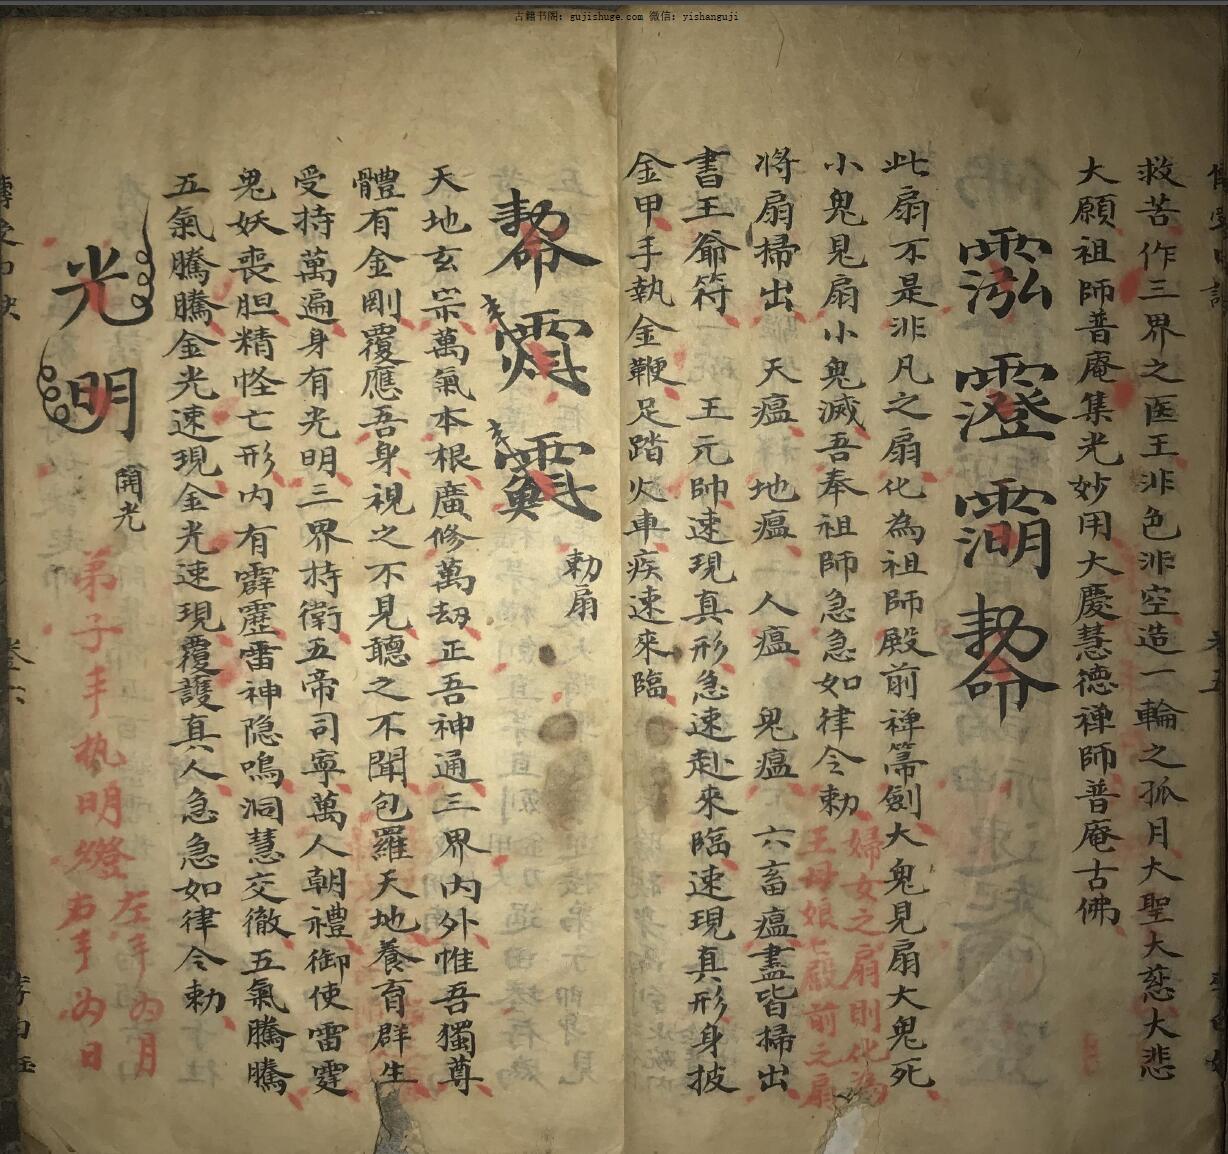 古籍书阁：gujishuge.com 微信：yishanguji
救苦作三界之医王非色非空造一輪之孤月大聖大慈大悲
大願祖師普庵集光妙用大慶慧德禅師普庵古佛
澄
此扇不是非凡之扇化為祖師殿前禅箒劍大鬼見扇大鬼死
小鬼見扇小鬼滅吾奉祖師急急如律令勅
婦女之扇則化為
王母娘亡殿前之扇
将扇掃出 天瘟 地瘟 人瘟 鬼瘟 六畜瘟盡皆掃出
書王爺符 王元帅速現真形急速赴來臨速現真形身披
金甲手執金鞭足踏火車疾速來臨
勅扇
天地玄宗萬氣本根廣修萬劫正吾神通三界内外惟吾獨尊
體有金剛覆應吾身視之不見聽之不聞包羅天地養育群生
受持萬遍身有光明三界持衛五帝司寧萬人朝禮御使雷霆
鬼妖喪胆精怪亡形内有霹靂雷神隐鳴洞慧交徹五氣騰騰
五氣騰騰金光速現金光速現覆護真人急急如律令勅
光明
開光
弟子手执明燈左手為月
右手為日